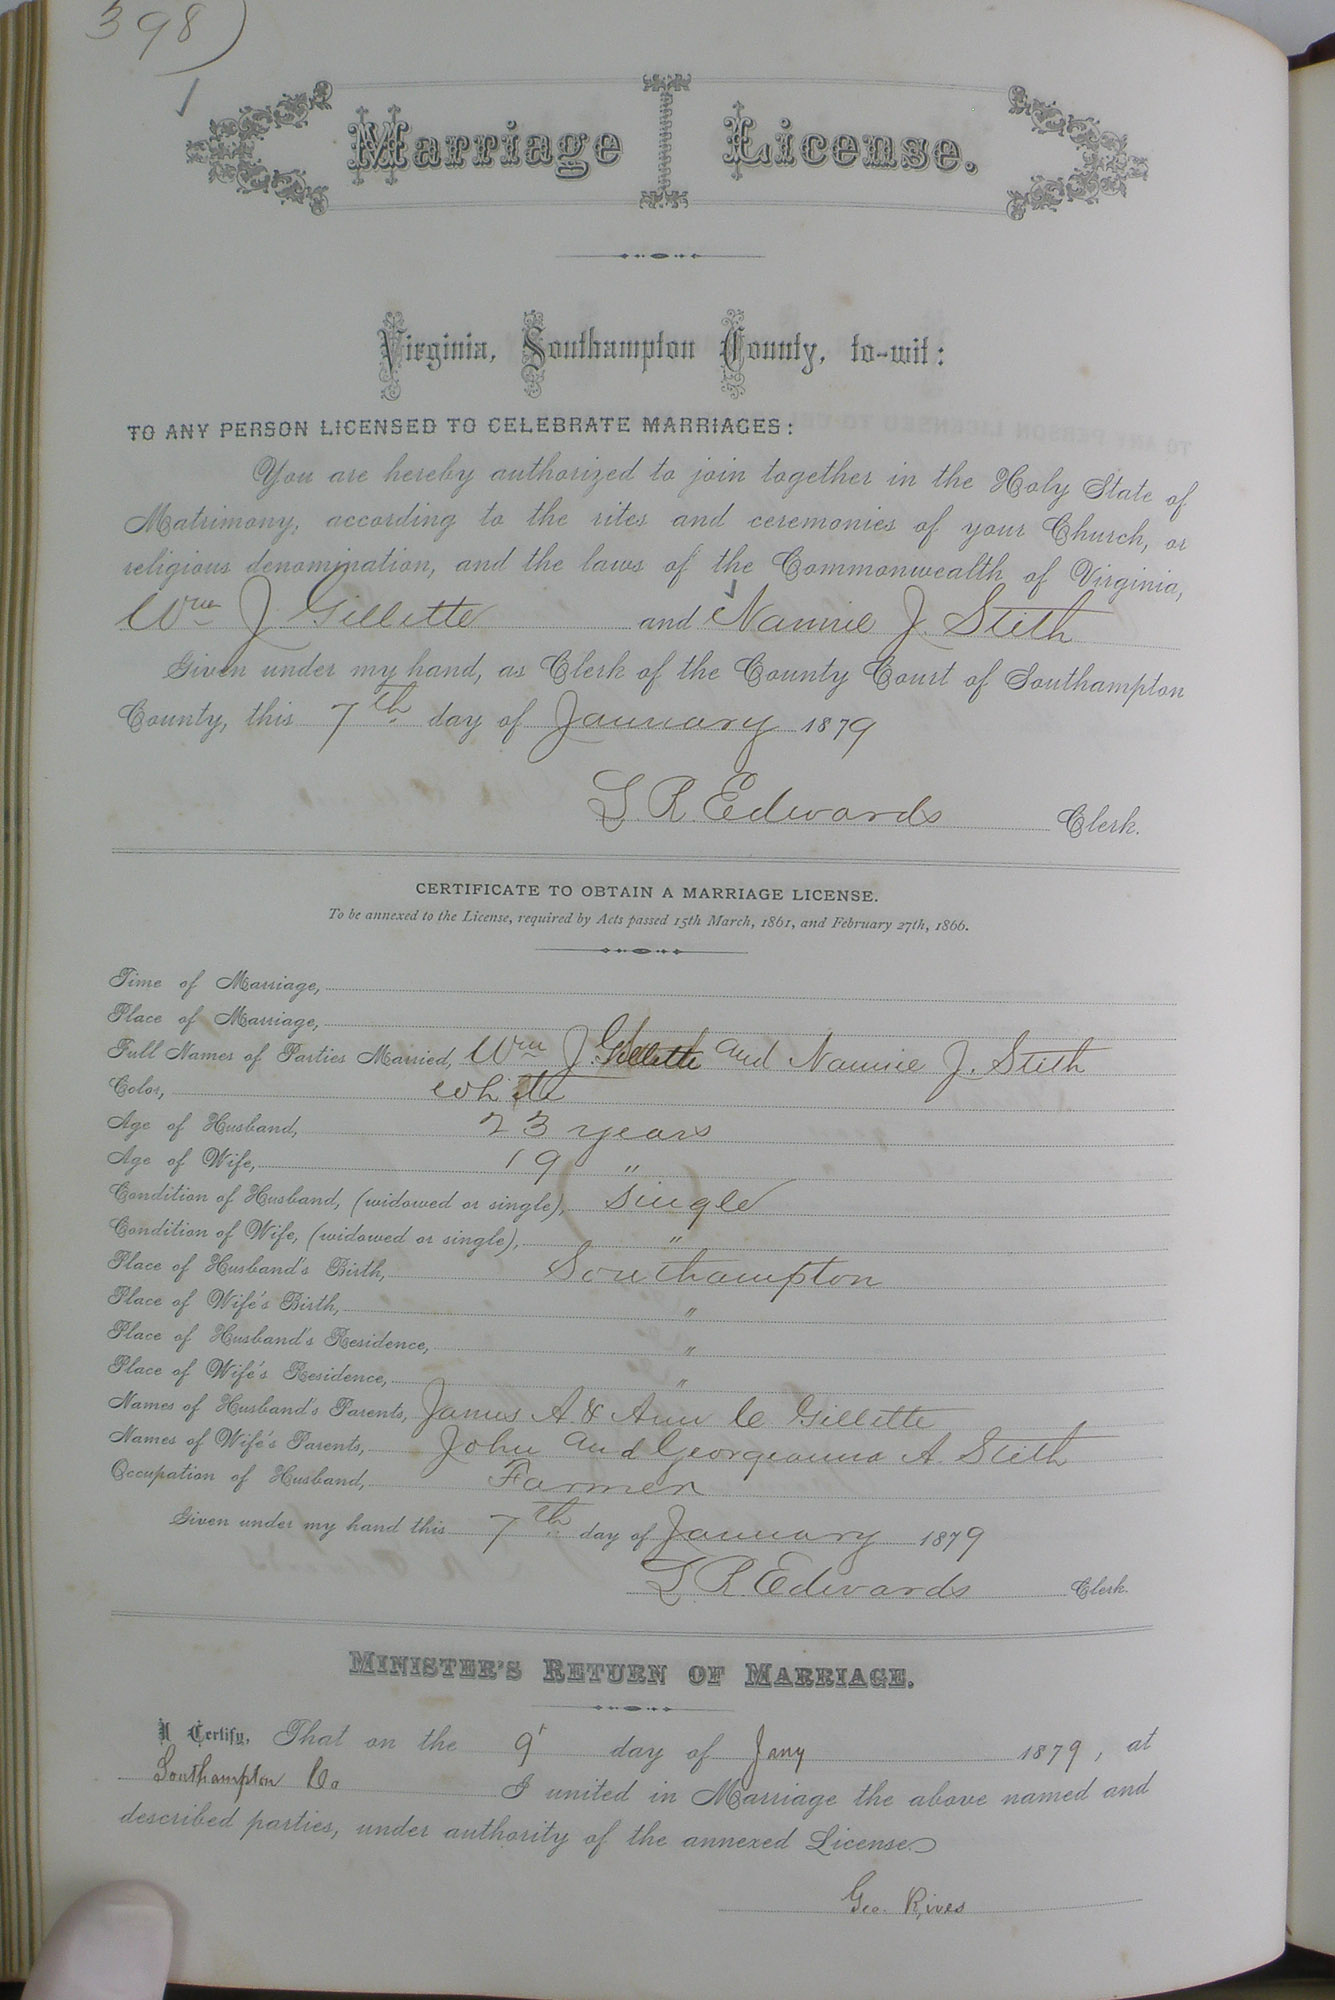 398)
Marriage License.
Virginia, Southampton County, to-wit:
TO ANY PERSON LICENSED TO CELEBRATE MARRIAGES:
You are hereby authorized to join together in the Holy State of
Matrimony, according to the rites and ceremonies of your Church, or
religious denomination, and the laws of the Commonwealth of Virginia,
Wm J. Gillette and Nannie J. Stith
Given under my hand, as Clerk of the County Court of Southampton
County, this 7th day of January 1879
L. R. Edwards Clerk.
CERTIFICATE TO OBTAIN A MARRIAGE LICENSE.
To be annexed to the License, required by Acts passed 15th March, 1861, and February 27th, 1866.
Time of Marriage,
Place of Marriage,
Full Names of Parties Married, Wm J. Gillette and Nannie J. Stith
Color, White
Age of Husband, 23 years
Age of Wife, 19 "
Condition of Husband, (widowed or single), Single
Condition of Wife, (widowed or single), "
Place of Husband's Birth, Southampton
Place of Wife's Birth, "
Place of Husband's Residence, "
Place of Wife's Residence, "
Names of Husband's Parents, James A. & Ann C. Gillette
Names of Wife's Parents, John and Georgeanna A. Stith
Occupation of Husband, Farmer
Given under my hand this 7th day of January 1879
L. R. Edwards Clerk.
MINISTER'S RETURN OF MARRIAGE.
I Certify, That on the 9 day of Jany 1879, at
Southampton Co I united in Marriage the above named and
described parties, under authority of the annexed License
Geo. Rives